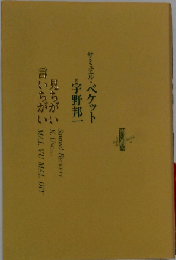 サミュエル・ベケット
宇野邦一 訳
見ちがい
言いちがい
Samuel Beckett
MAL VU MAL DIT